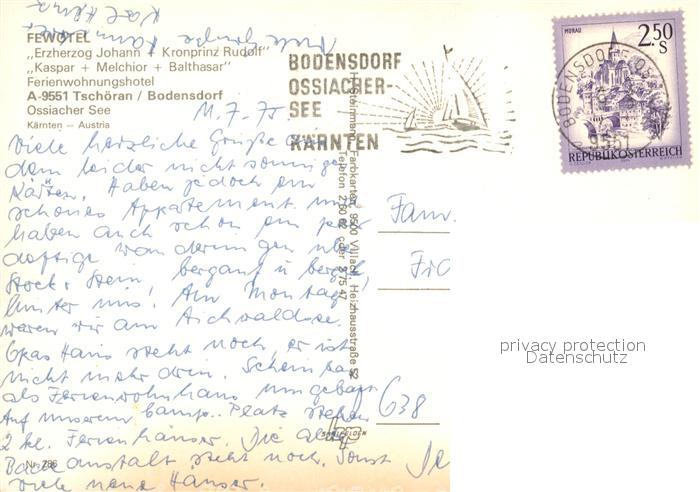 FEWOTEL
„Erzherzog Johann + Kronprinz Rudolf"
„Kaspar + Melchior + Balthasar"
Ferienwohnungshotel
A-9551 Tschöran / Bodensdorf
Ossiacher See
Kärnten — Austria
BODENSDORF
OSSIACHER-
SEE
KÄRNTEN
MURAU
2.50
S
REPUBLIK ÖSTERREICH
BODENSDORF
9551
11.7.75
Viele herzliche Grüße aus
dem leider nicht sonnigen
Kärnten. Haben jedoch ein
schönes Appartement und
haben auch schon ein paar
deftige Wanderungen über
Stock u. Stein, bergauf u. bergab,
hinter uns! Am Montag
waren wir am Aichwaldsee.
Opas Haus steht noch, er ist
nicht mehr drin. Scheinbar
als Ferienwohnhaus umgebaut.
Auf unserem Camp. Platz stehen
2 kl. Ferienhäuser. Die alte
Badeanstalt steht noch. Sonst
viele neue Häuser.
Viele Grüße
Fam.
638
Farbkarten, 9500 Villach, Heizhausstraße
Telefon
oder
privacy protection
Datenschutz